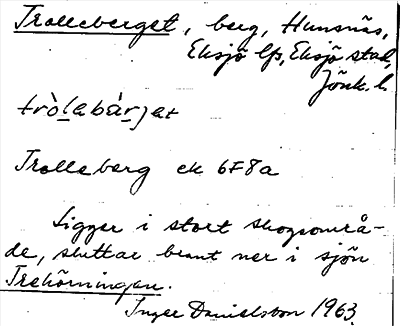 Trolleberget, berg, Hunsnäs,
Eksjö lfs, Eksjö stad,
Jönk. l.
tròlabàrjat
Trolleberg ek 6F8a
Ligger i stort skogsområ-
de, sluttar brant ner i sjön
Trehörningen.
Inger Danielsson 1963